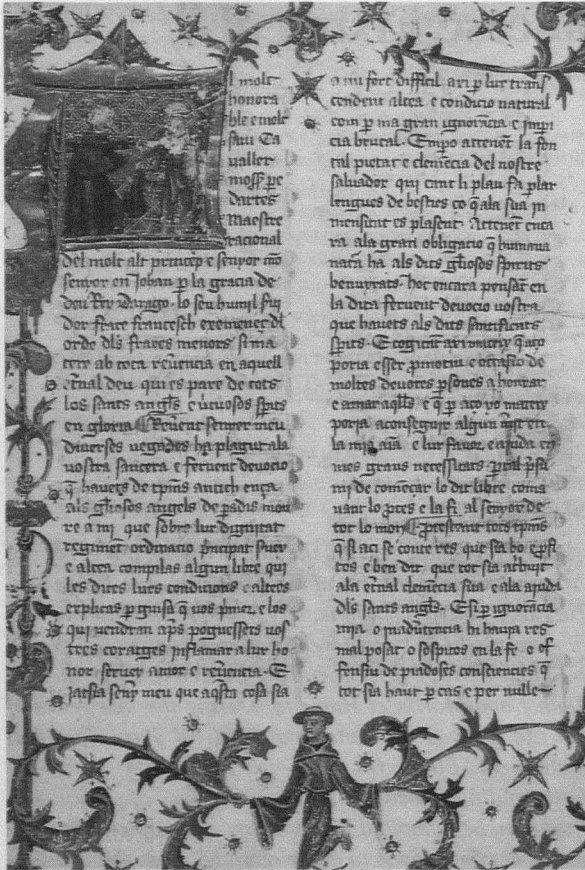 l molt
honora
ble e molt
savi Ca
valler
moss pe
dartes
Maestre
racional
del molt alt princep e senyor mo
senyor en Johan p la gracia de
deu Rey darago. lo seu humil sui
dor frare francesch eximenec dl
orde dls frares menors si ma
tex ab tota reuencia en aquell
etnal deu qui es pare de tots
los sants angls e utuosos spits
en gloria Reuent senyer meu
diuerses vegades ha plagut ala
vostra sancera e feruent deuocio
q hauets de tpms antich enca
als gliosos angels de padis mou
re a mi que sobre lur dignitat
regiment ordinacio pncipat suey
e altea compilas algun libre qui
les dites lurs condicions e altees
explicas p guisa q vos pmer e los
qui vendran aps poguessets vos
tres coratges inflamar a lur ho
nor seruey amor e reuencia. E
iatsia senyr meu que aqsta cosa sia
a mi fort dificil axi p lur trans
cendent altea e condicio natural
com p ma gran ignorancia e impi
cia brutal. Empo attenet la fon
tal pietat e clemecia del nostre
saluador qui cant li plau fa plar
lengues de besties co q ala sua in
mensitat es plasent. Attenet enca
ra ala gran obligacio q humana
natua ha als dits gliosos spirits
benuyrats. hoc encara pensat en
la dita feruent deuocio vostra
que hauets als dits santificats
spits. E cogitat axi matex q aço
poria esser pmotiu e occasio de
moltes deuotes psones a honrar
e amar aqlls e q p aço yo matex
poria aconseguir algun mit en
la mia aia e lur fauor e aiuda en
mes grans necessitats. pral psi
mi de començar lo dit libre coma
nant lo ptes e la fi al senyor de
tot lo mon Protestant tots tpms
q si aci se conte res que sia bo e pfi
tos e ben dit que tot sia atbuit
ala etnal clemecia sua e ala aiuda
dls sants angls. E si p ignorancia
mia o inadutencia hi hauia res
mal posat o sospitos en la fe o of
fensiu de piadoses consciencies q
tot sia haut p cas e per nulle